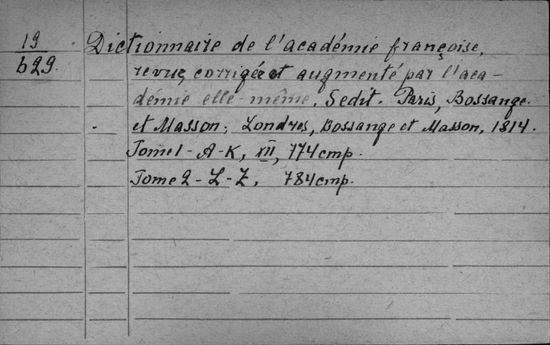 19
629.
Dictionnaire de l'académie françoise,
revue, corrigée et augmenté par l'aca-
démie elle-même. 5 edit. Paris, Bossange
et Masson; Londres, Bossange et Masson, 1814.
Tome 1 - A-K, XII, 774 стр.
Tome 2 - L-Z, 784 стр.